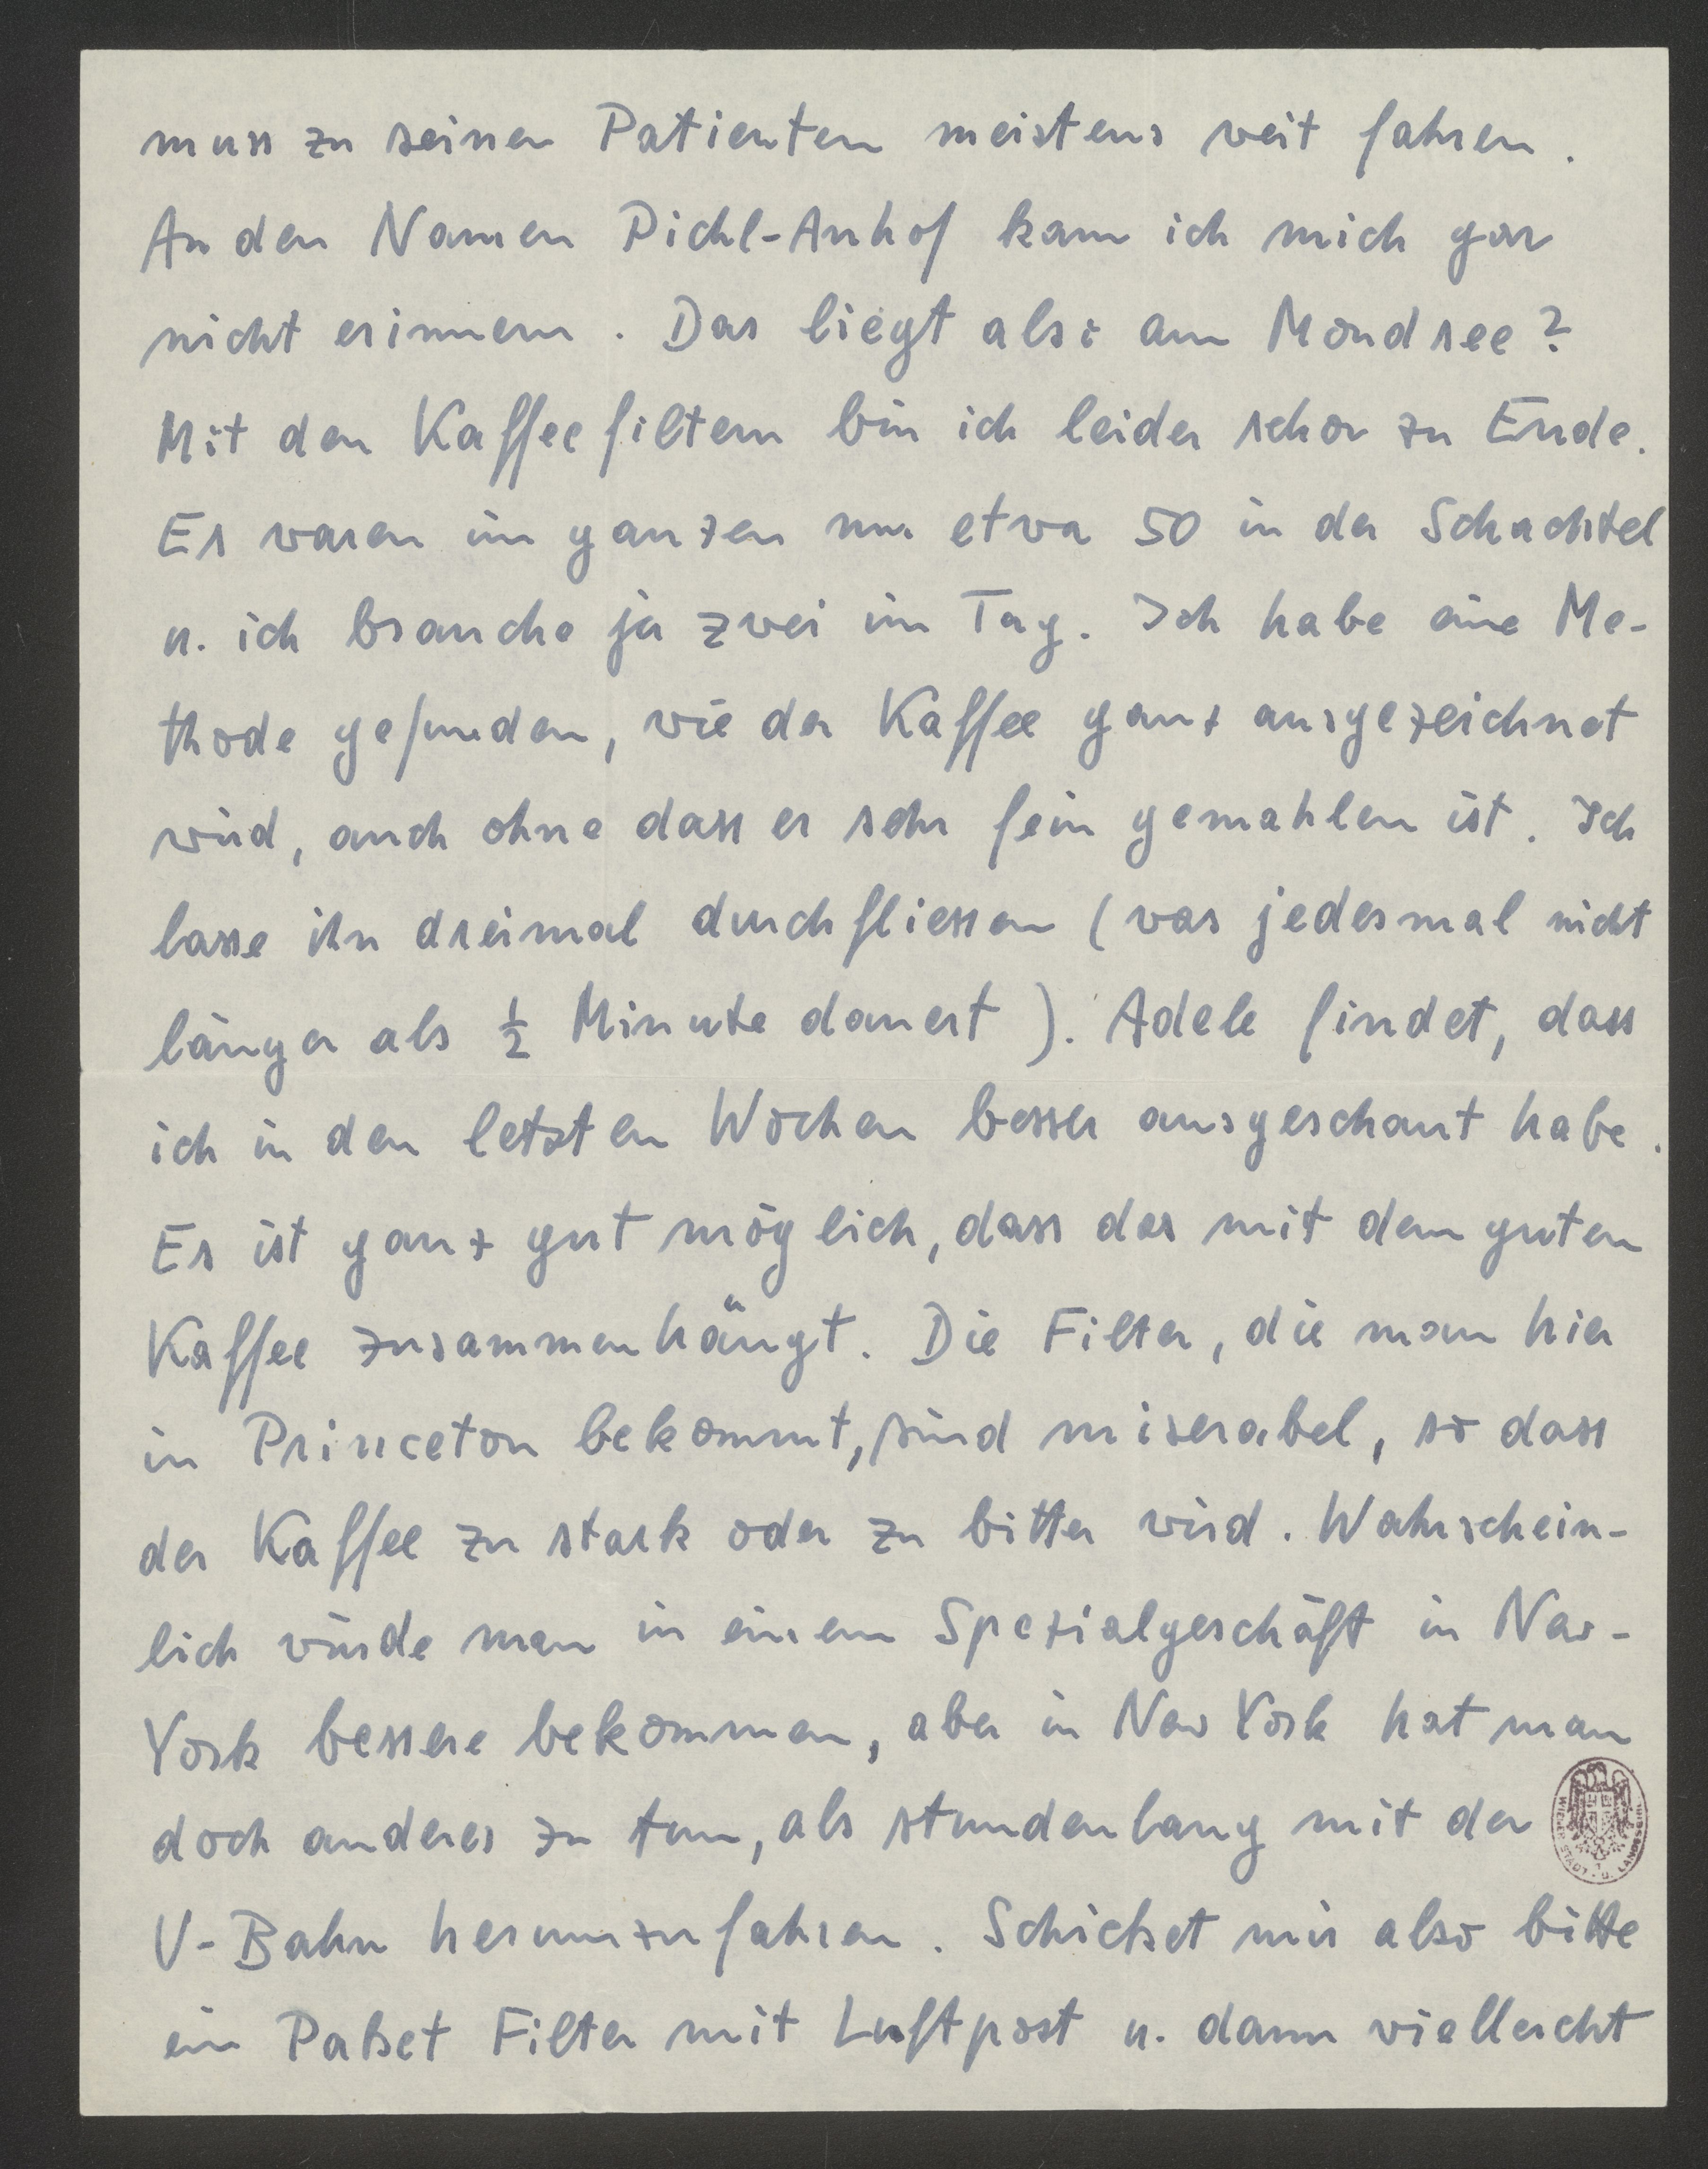 muss zu seinen Patienten meistens weit fahren.
An den Namen Pichl-Auhof kann ich mich gar
nicht erinnern. Das liegt also am Mondsee?
Mit den Kaffeefiltern bin ich leider schon zu Ende.
Es waren im ganzen nur etwa 50 in der Schachtel
u. ich brauche ja zwei im Tag. Ich habe eine Me-
thode gefunden, wie der Kaffee ganz ausgezeichnet
wird, auch ohne dass er sehr fein gemahlen ist. Ich
lasse ihn dreimal durchfliessen (was jedesmal nicht
länger als ½ Minute dauert). Adele findet, dass
ich in den letzten Wochen besser ausgeschaut habe.
Es ist ganz gut möglich, dass das mit dem guten
Kaffee zusammenhängt. Die Filter, die man hier
in Princeton bekommt, sind miserabel, so dass
der Kaffee zu stark oder zu bitter wird. Wahrschein-
lich würde man in einem Spezialgeschäft in New-
York bessere bekommen, aber in New York hat man
doch anderes zu tun, als stundenlang mit der
WIENER STADT- U. LANDESBIBL.
U-Bahn herumzufahren. Schicket mir also bitte
ein Paket Filter mit Luftpost u. dann vielleicht